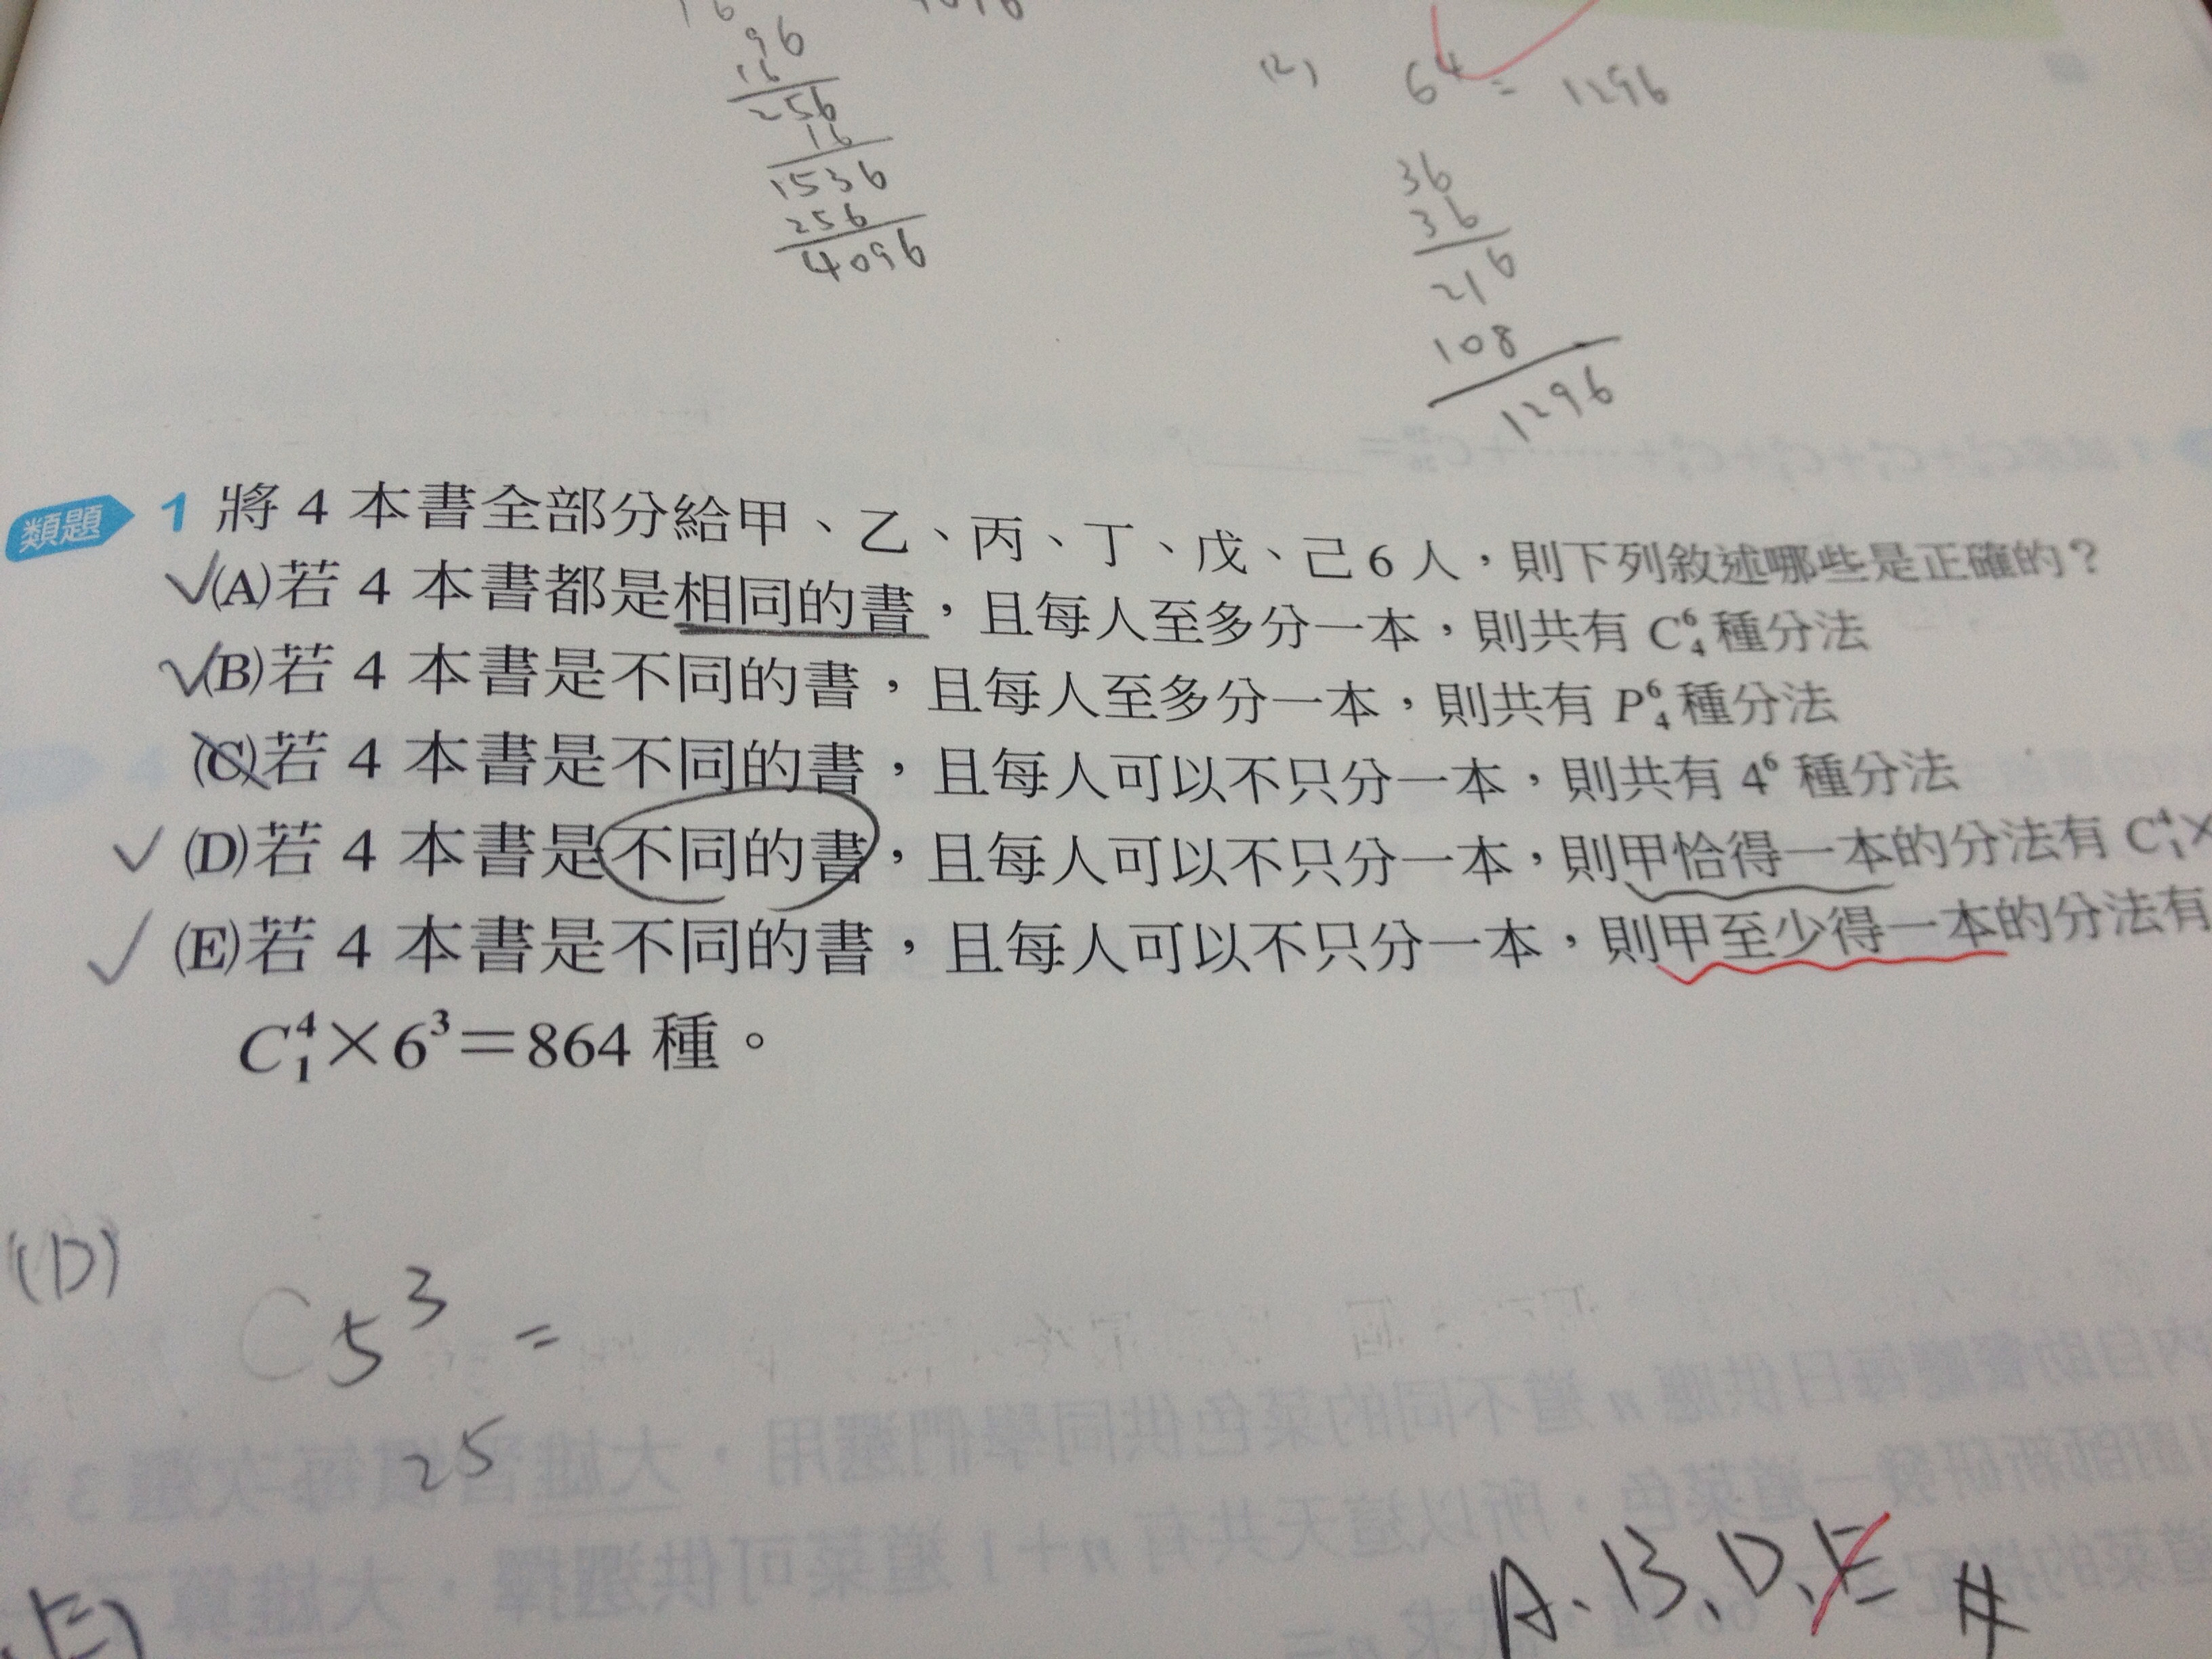 96
16
256
16
1536
256
4096
(2) 6⁴ = 1296
36
36
216
108
1296
類題 1 將 4 本書全部分給甲、乙、丙、丁、戊、己 6 人，則下列敘述哪些是正確的？
✓(A)若 4 本書都是相同的書，且每人至多分一本，則共有 C⁶₄ 種分法
✓(B)若 4 本書是不同的書，且每人至多分一本，則共有 P⁶₄ 種分法
(C)若 4 本書是不同的書，且每人可以不只分一本，則共有 4⁶ 種分法
✓(D)若 4 本書是不同的書，且每人可以不只分一本，則甲恰得一本的分法有 C⁴₁×
✓(E)若 4 本書是不同的書，且每人可以不只分一本，則甲至少得一本的分法有
C⁴₁×6³＝864 種。
(D)
C 5³ =
25
A、B、D、E #
(E)